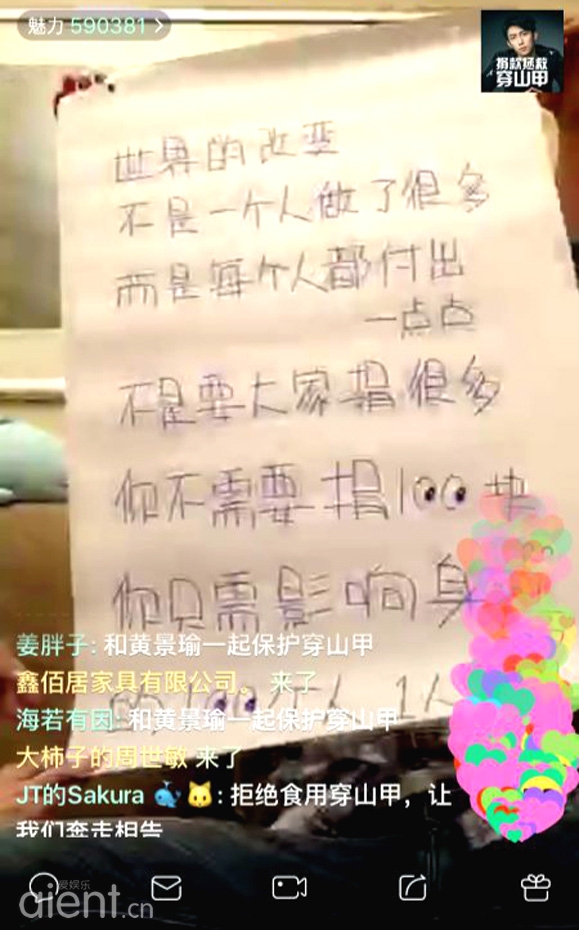 魅力 590381 >
捐款拯救
穿山甲
世界的改变
不是一个人做了很多
而是每个人都付出
一点点
不是要大家捐很多
你不需要捐100块
你只需影响身
姜胖子: 和黄景瑜一起保护穿山甲
鑫佰居家具有限公司。 来了
海若有因: 和黄景瑜一起保护穿山甲
大柿子的周世敏 来了
JT的Sakura 🐳 🐱 : 拒绝食用穿山甲，让
我们奔走相告
爱娱乐
aient.cn